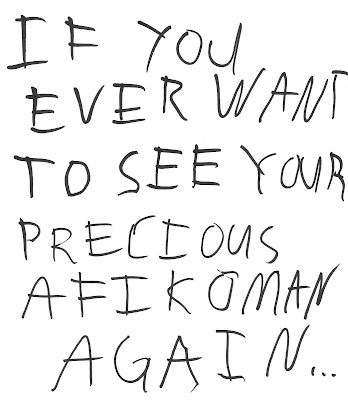 IF YOU
EVER WANT
TO SEE YOUR
PRECIOUS
AFIKOMAN
AGAIN...